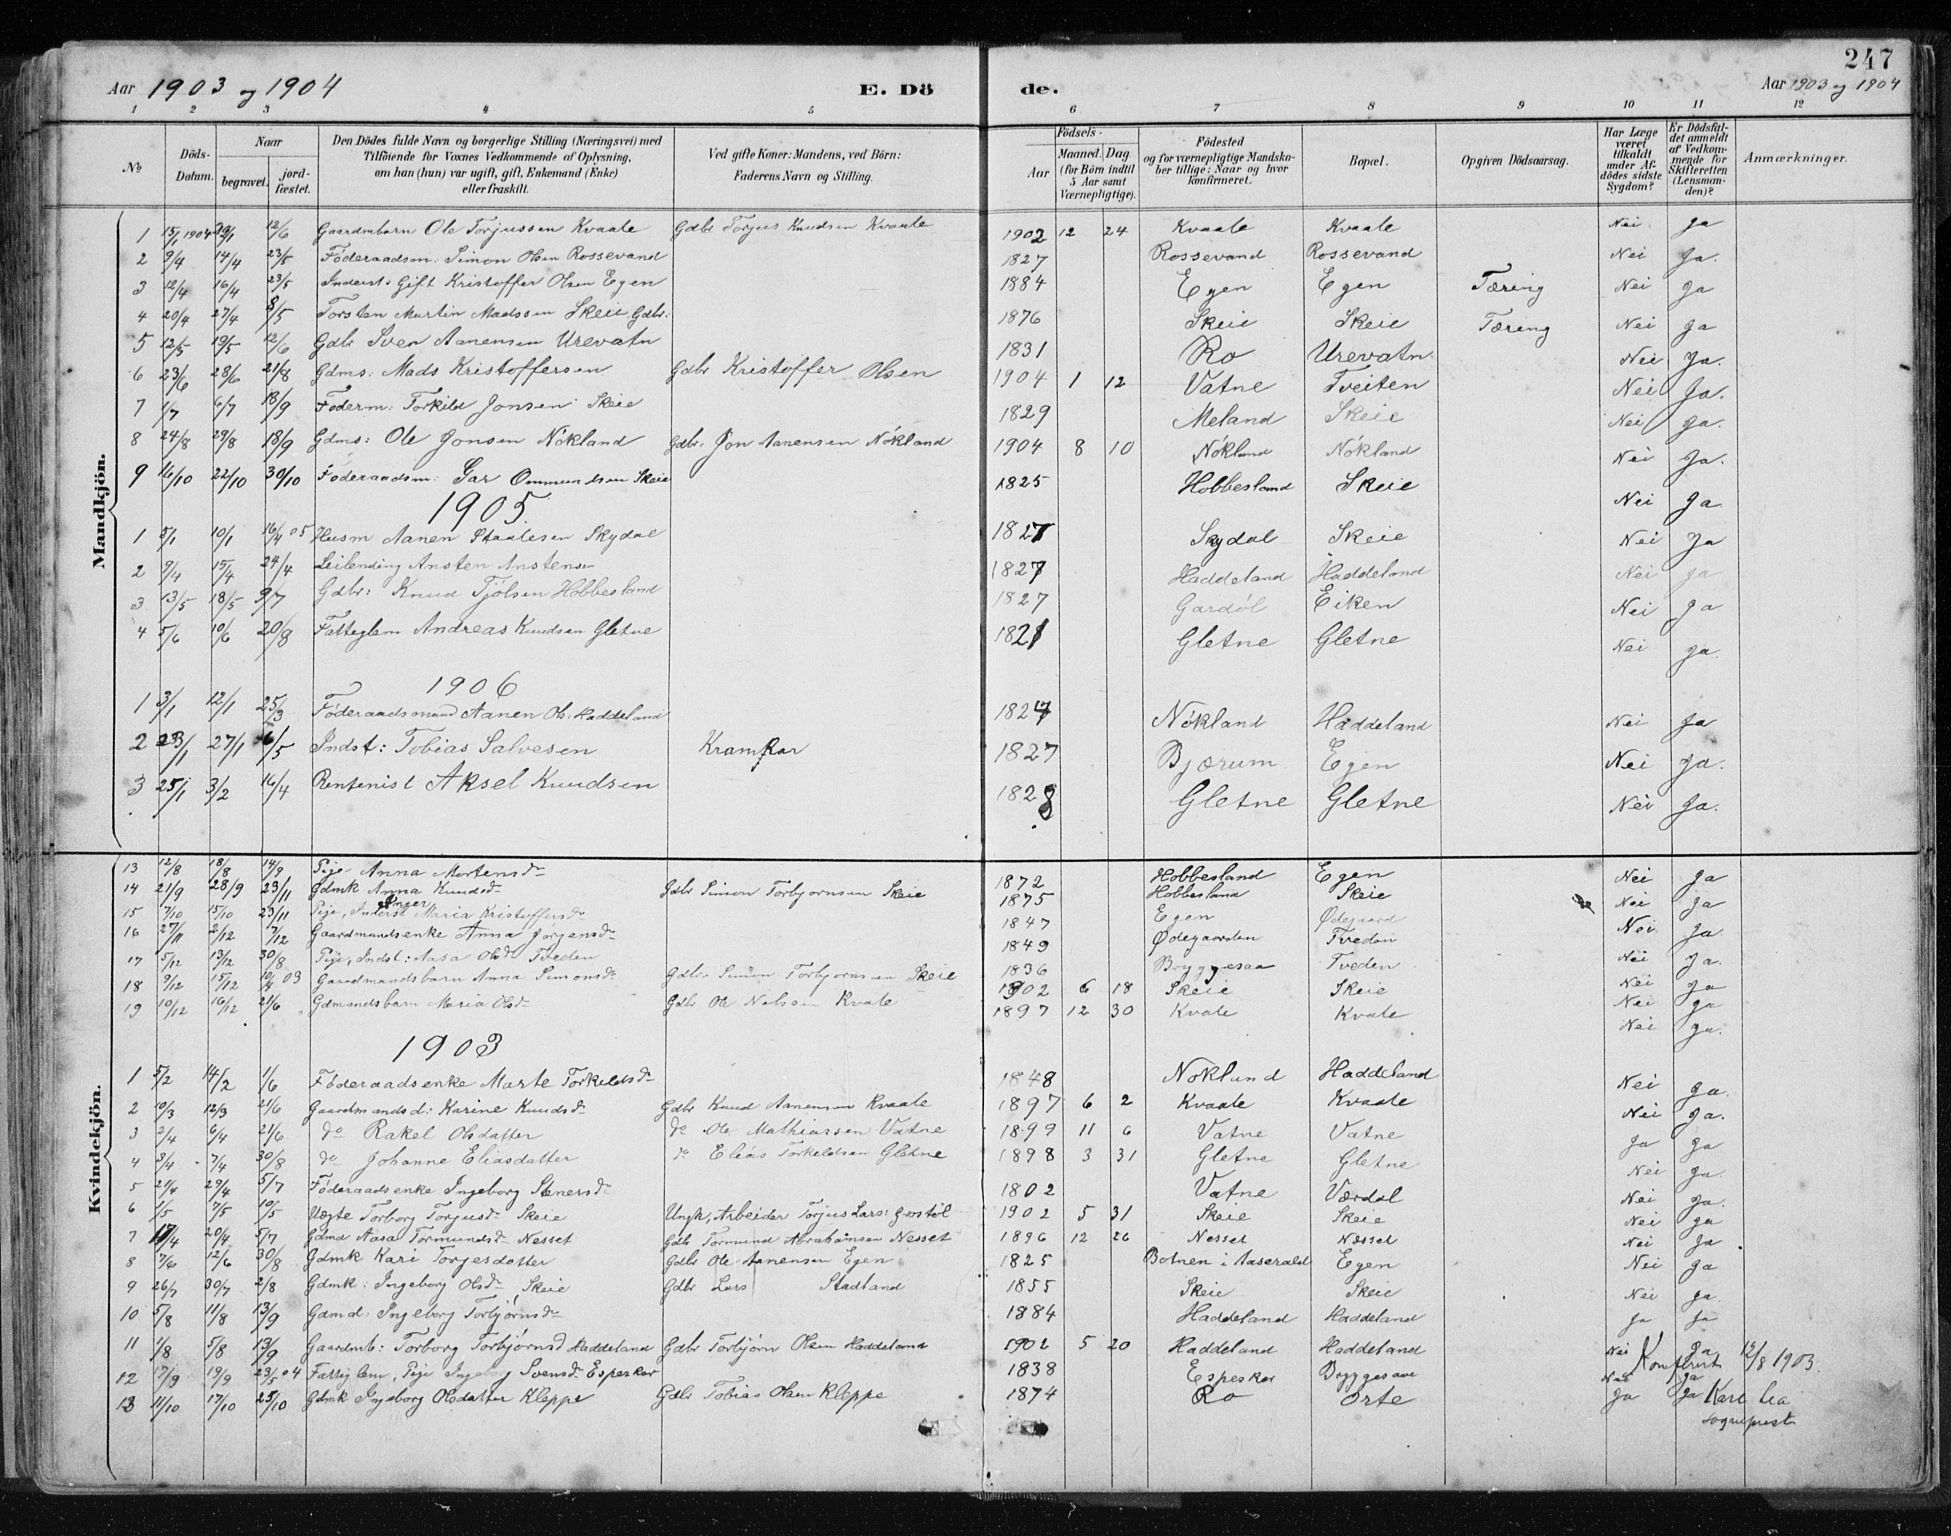 247
Aar 1903 og 1904 E. Dö de. Aar 1903 og 1904
1 2 3 4 5 6 7 8 9 10 11 12
No
Döds-Datum.
Naar
begravet. jord-fæstet.
Den Dödes fulde Navn og borgerlige Stilling (Næringsvei) med
Tilföiende for Voxnes Vedkommende af Oplysning,
om han (hun) var ugift, gift, Enkemand (Enke)
eller fraskilt.
Ved gifte Koner: Mandens, ved Börn:
Faderens Navn og Stilling.
Födsels-
Aar Maaned. Dag
(for Börn indtil
5 Aar samt
Værnepligtige).
Födested
og for værnepligtige Mandska-
ber tillige: Naar og hvor
konfirmeret.
Bopæl.
Opgiven Dödsaarsag.
Har Læge
været
tilkaldt
under Af-
dödes sidste
Sygdom?
Er Dödsfal-
det anmeldt
af Vedkom-
mende for
Skifteretten
(Lensman-
den)?
Anmærkninger.
Mandkjön.
1 15/1 1904 12/6 Gaardmbarn Ole Torjussen Kvaale Gdbr Torjus Knudsen Kvaale 1902 12 24 Kvaale Kvaale Nei Ja
2 9/4 14/4 23/5 Föderaadsm: Simon Olsen Rossevand 1827 Rossevand Rossevand Nei Ja.
3 12/4 16/4 23/5 Inderst: Gift Kristoffer Olsen Egen 1884 Egen Egen Tæring Nei Ja
4 20/4 27/4 8/5 Torsten Martin Madssen Skeie Gdbr: 1876 Skeie Skeie Tæring Nei Ja
5 12/5 19/5 12/6 Gdbr Sven Aanensen Urevatn 1831 Ro Urevatn Nei Ja.
6 23/6 28/6 21/8 Gdms: Mads Kristoffersen Gdbr Kristoffer Olsen 1904 1 12 Vatne Tveiten Nei Ja.
7 1/7 6/7 18/9 Föderm: Torkild Jonsen Skeie 1829 Meland Skeie Nei Ja.
8 24/8 29/8 18/9 Gdms: Ole Jonsen Nökland Gdbr. Jon Aanensen Nökland 1904 8 10 Nökland Nökland Nei Ja.
9 16/10 22/10 30/10 Föderaadsm: Gar Ommundsen Skeie 1825 Hobbesland Skeie Nei Ja
1905.
1 5/1 10/1 16/4 05 Husm Aanen Staalesen Skydal 1827 Skydal Skeie Nei Ja
2 9/4 15/4 24/4 Leilending Ansten Anstensen 1827 Haddeland Haddeland Nei Ja
3 13/5 18/5 9/7 Gdbr: Knud Tjölsen Hobbesland 1827 Gardöl Eiken Nei Ja
4 5/6 10/6 20/8 Fatteglem Andreas Knudsen Gletne 1821 Gletne Gletne Nei Ja.
1906
1 3/1 12/1 25/3 Föderaadsmand Aanen Ols. Haddeland 1827 Nökland Haddeland Nei Ja
2 23/1 27/1 6/5 Indst: Tobias Salvesen Kramkar 1827 Bjærum Egen Nei Ja.
3 25/1 3/2 16/4 Rentenist Aksel Knudsen 1828 Gletne Gletne Nei Ja.
Kvindekjön.
13 12/8 18/8 14/9 Pige Anna Mortensdr 1872 Hobbesland Egen Nei Ja
14 21/9 28/9 23/11 Gdmk Anna Knudsdr Gdbr Simon Torbjornsen Skeie 1875 Hobbesland Skeie Nei Ja
15 7/10 15/10 23/11 Pige, Inderst Maria Kristoffersdr 1847 Egen Ødegaard Nei Ja
16 27/11 2/12 7/12 Gaardmandsenke Anna Jorgensdr 1849 Ødegaarden Tveden Nei Ja.
17 5/12 13/12 30/8 Pige, Indst: Aasa Olsdr Tveden 1836 Bryggesaa Tveden Nei Ja
18 9/12 15/12 10/4 03 Gaardmandsbarn Anna Simonsdr Gdbr Simon Torbjornsen Skeie 1902 6 18 Skeie Skeie Nei Ja
19 10/12 16/12 21/6 Gdmandsbarn Maria Olsdr Gdbr Ole Nilssen Kvale 1897 12 30 Kvale Kvale Nei Ja.
1903
1 5/2 14/2 1/6 Föderaadsenke Marte Torkeldsdr 1848 Nökland Haddeland Nei Ja.
2 10/3 12/3 21/6 Gaardmandsd: Karine Knudsdr Gdbr Knud Aanensen Kvaale 1897 6 2 Kvaale Kvaale Nei Ja.
3 2/4 6/4 21/6 do Rakel Olsdatter do Ole Mathiassen Vatne 1899 11 6 Vatne Vatne Ja Ja
4 3/4 7/4 30/8 do Johanne Eliasdatter do Elias Torkeldsen Gletne 1898 3 31 Gletne Gletne Nei Ja.
5 21/4 29/4 5/7 Föderaadsenke Ingeborg Stenersdr 1802 Vatne Værdal Nei Ja.
6 1/5 7/5 10/5 Uegte Torborg Torjusdr Skeie Ungk, Arbeider Torjus Lars: 1902 5 31 Skeie Skeie Nei Ja
7 17/4 20/4 5/7 Gdmd Aasa Tormundsdr Nesset Gdbr Tormund Abrahamsen Nesset 1896 12 26 Nesset Næsset Nei Ja.
8 7/6 12/6 30/8 Gdmk Kari Torgesdatter Gdbr Ole Aanensen Egen 1825 Botnen i Aaserald Egen Nei Ja
9 26/7 30/7 2/8 Gdmk: Ingeborg Olsdr, Skeie Gdbr Lars Stadland 1855 Skeie Skeie Nei Ja.
10 5/8 11/8 13/9 Gdmd: Ingeborg Torbjörnsdr 1884 Haddeland Haddeland Ja Ja
11 1/8 5/8 13/9 Gaardmb: Torborg Torbjörnsd Haddeland Gdbr Torbjörn Olsen Haddeland 1902 5 20 Haddeland Haddeland Nei Ja
12 17/9 19/9 23/5 04 Fattiglem, Pige Ingeborg Svensdr Espeskar 1838 Espeskar Bryggesaa Nei Ja
13 11/10 17/10 25/10 Gdmk Ingeborg Olsdatter Kleppe Gdbr Tobias Olsen Kleppe 1874 Ro Orte Ja Ja
Konferert 12/8 1903.
Karl Lea
sogneprest